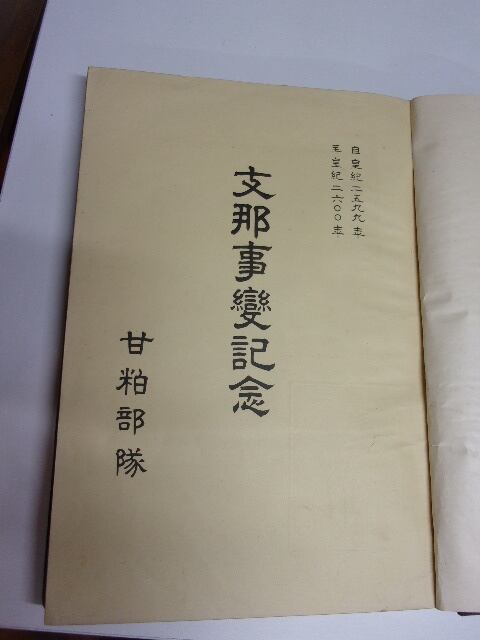 自皇紀二五九九年
至皇紀二六〇〇年
支那事變記念
甘粕部隊